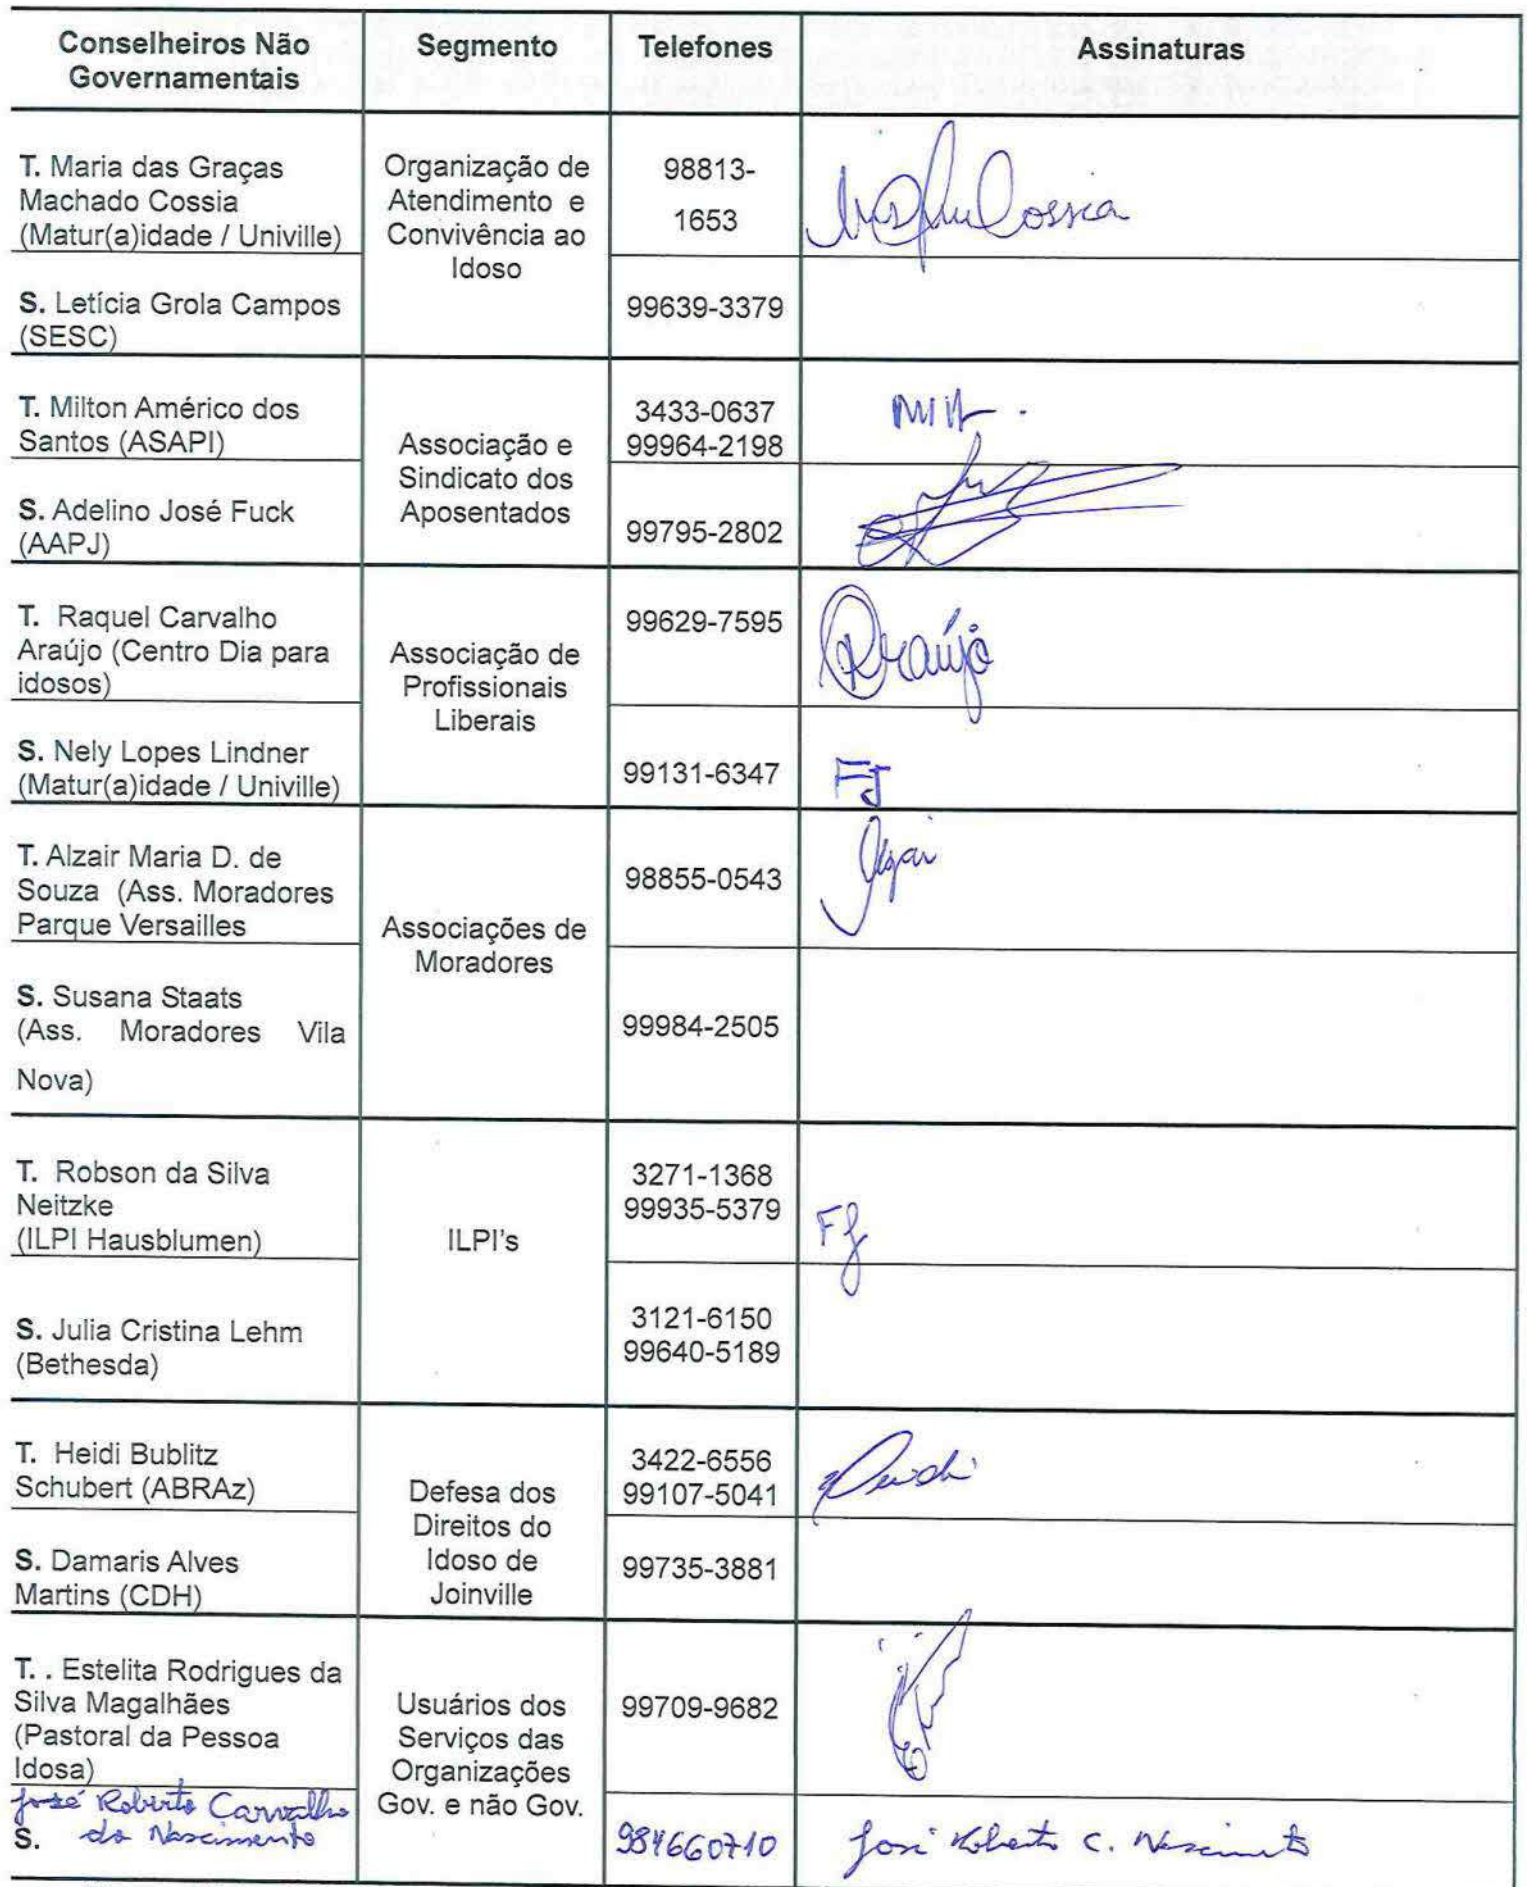 Conselheiros Não Governamentais Segmento Telefones Assinaturas
T. Maria das Graças
Machado Cossia
(Matur(a)idade / Univille)
Organização de
Atendimento e
Convivência ao
Idoso
98813-
1653
Cossia
S. Letícia Grola Campos
(SESC)
99639-3379
T. Milton Américo dos
Santos (ASAPI)
Associação e
Sindicato dos
Aposentados
3433-0637
99964-2198
S. Adelino José Fuck
(AAPJ)
99795-2802
T. Raquel Carvalho
Araújo (Centro Dia para
idosos)
Associação de
Profissionais
Liberais
99629-7595
Araújo
S. Nely Lopes Lindner
(Matur(a)idade / Univille)
99131-6347
FJ
T. Alzair Maria D. de
Souza (Ass. Moradores
Parque Versailles
Associações de
Moradores
98855-0543
S. Susana Staats
(Ass. Moradores Vila
Nova)
99984-2505
T. Robson da Silva
Neitzke
(ILPI Hausblumen)
ILPI's
3271-1368
99935-5379
FJ
S. Julia Cristina Lehm
(Bethesda)
3121-6150
99640-5189
T. Heidi Bublitz
Schubert (ABRAz)
Defesa dos
Direitos do
Idoso de
Joinville
3422-6556
99107-5041
Heidi
S. Damaris Alves
Martins (CDH)
99735-3881
T. . Estelita Rodrigues da
Silva Magalhães
(Pastoral da Pessoa
Idosa)
Usuários dos
Serviços das
Organizações
Gov. e não Gov.
99709-9682
José Roberto Carvalho
S. do Nascimento
984660710
José Roberto C. Nascimento